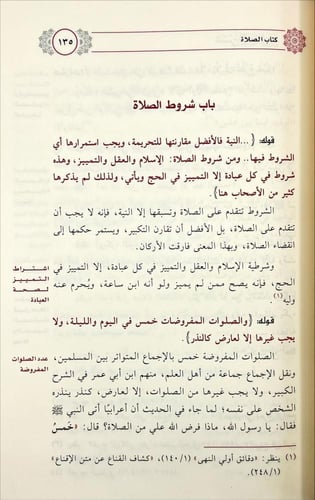 كتاب الصلاة
١٣٥
باب شروط الصلاة
قوله: {...النية فالأفضل مقارنتها للتحريمة، ويجب استمرارها أي
الشروط فيها.. ومن شروط الصلاة: الإسلام والعقل والتمييز، وهذه
شروط في كل عبادة إلا التمييز في الحج ويأتي، ولذلك لم يذكرها
كثير من الأصحاب هنا}.
الشروط تتقدم على الصلاة وتسبقها إلا النية، فإنه لا يجب أن
تتقدم على الصلاة، بل الأفضل أن تقارن التكبير، ويستمر حكمها إلى
انقضاء الصلاة، وبهذا المعنى فارقت الأركان.
وشرطية الإسلام والعقل والتمييز في كل عبادة، إلا التمييز في
الحج، فإنه يصح ممن لم يميز ولو أنه ابن ساعة، ويُحرم عنه
وليه(١).
اشتراط
التمييز
لصحة
العبادة
قوله: {والصلوات المفروضات خمس في اليوم والليلة، ولا
يجب غيرها إلا لعارض كالنذر}.
الصلوات المفروضة خمس بالإجماع المتواتر بين المسلمين،
ونقل الإجماع جماعة من أهل العلم، منهم ابن أبي عمر في الشرح
الكبير، ولا يجب غيرها من الصلوات، إلا لعارض، كنذر ينذره
الشخص على نفسه؛ لما جاء في الحديث أن أعرابيًا أتى النبي ﷺ
فقال: يا رسول الله، ماذا فرض الله علي من الصلاة؟ قال: «خَمسُ
عدد الصلوات
المفروضة
(١) ينظر: «دقائق أولي النهى» (١/ ١٤٠)، «كشاف القناع عن متن الإقناع»
(١/ ٢٤٨).